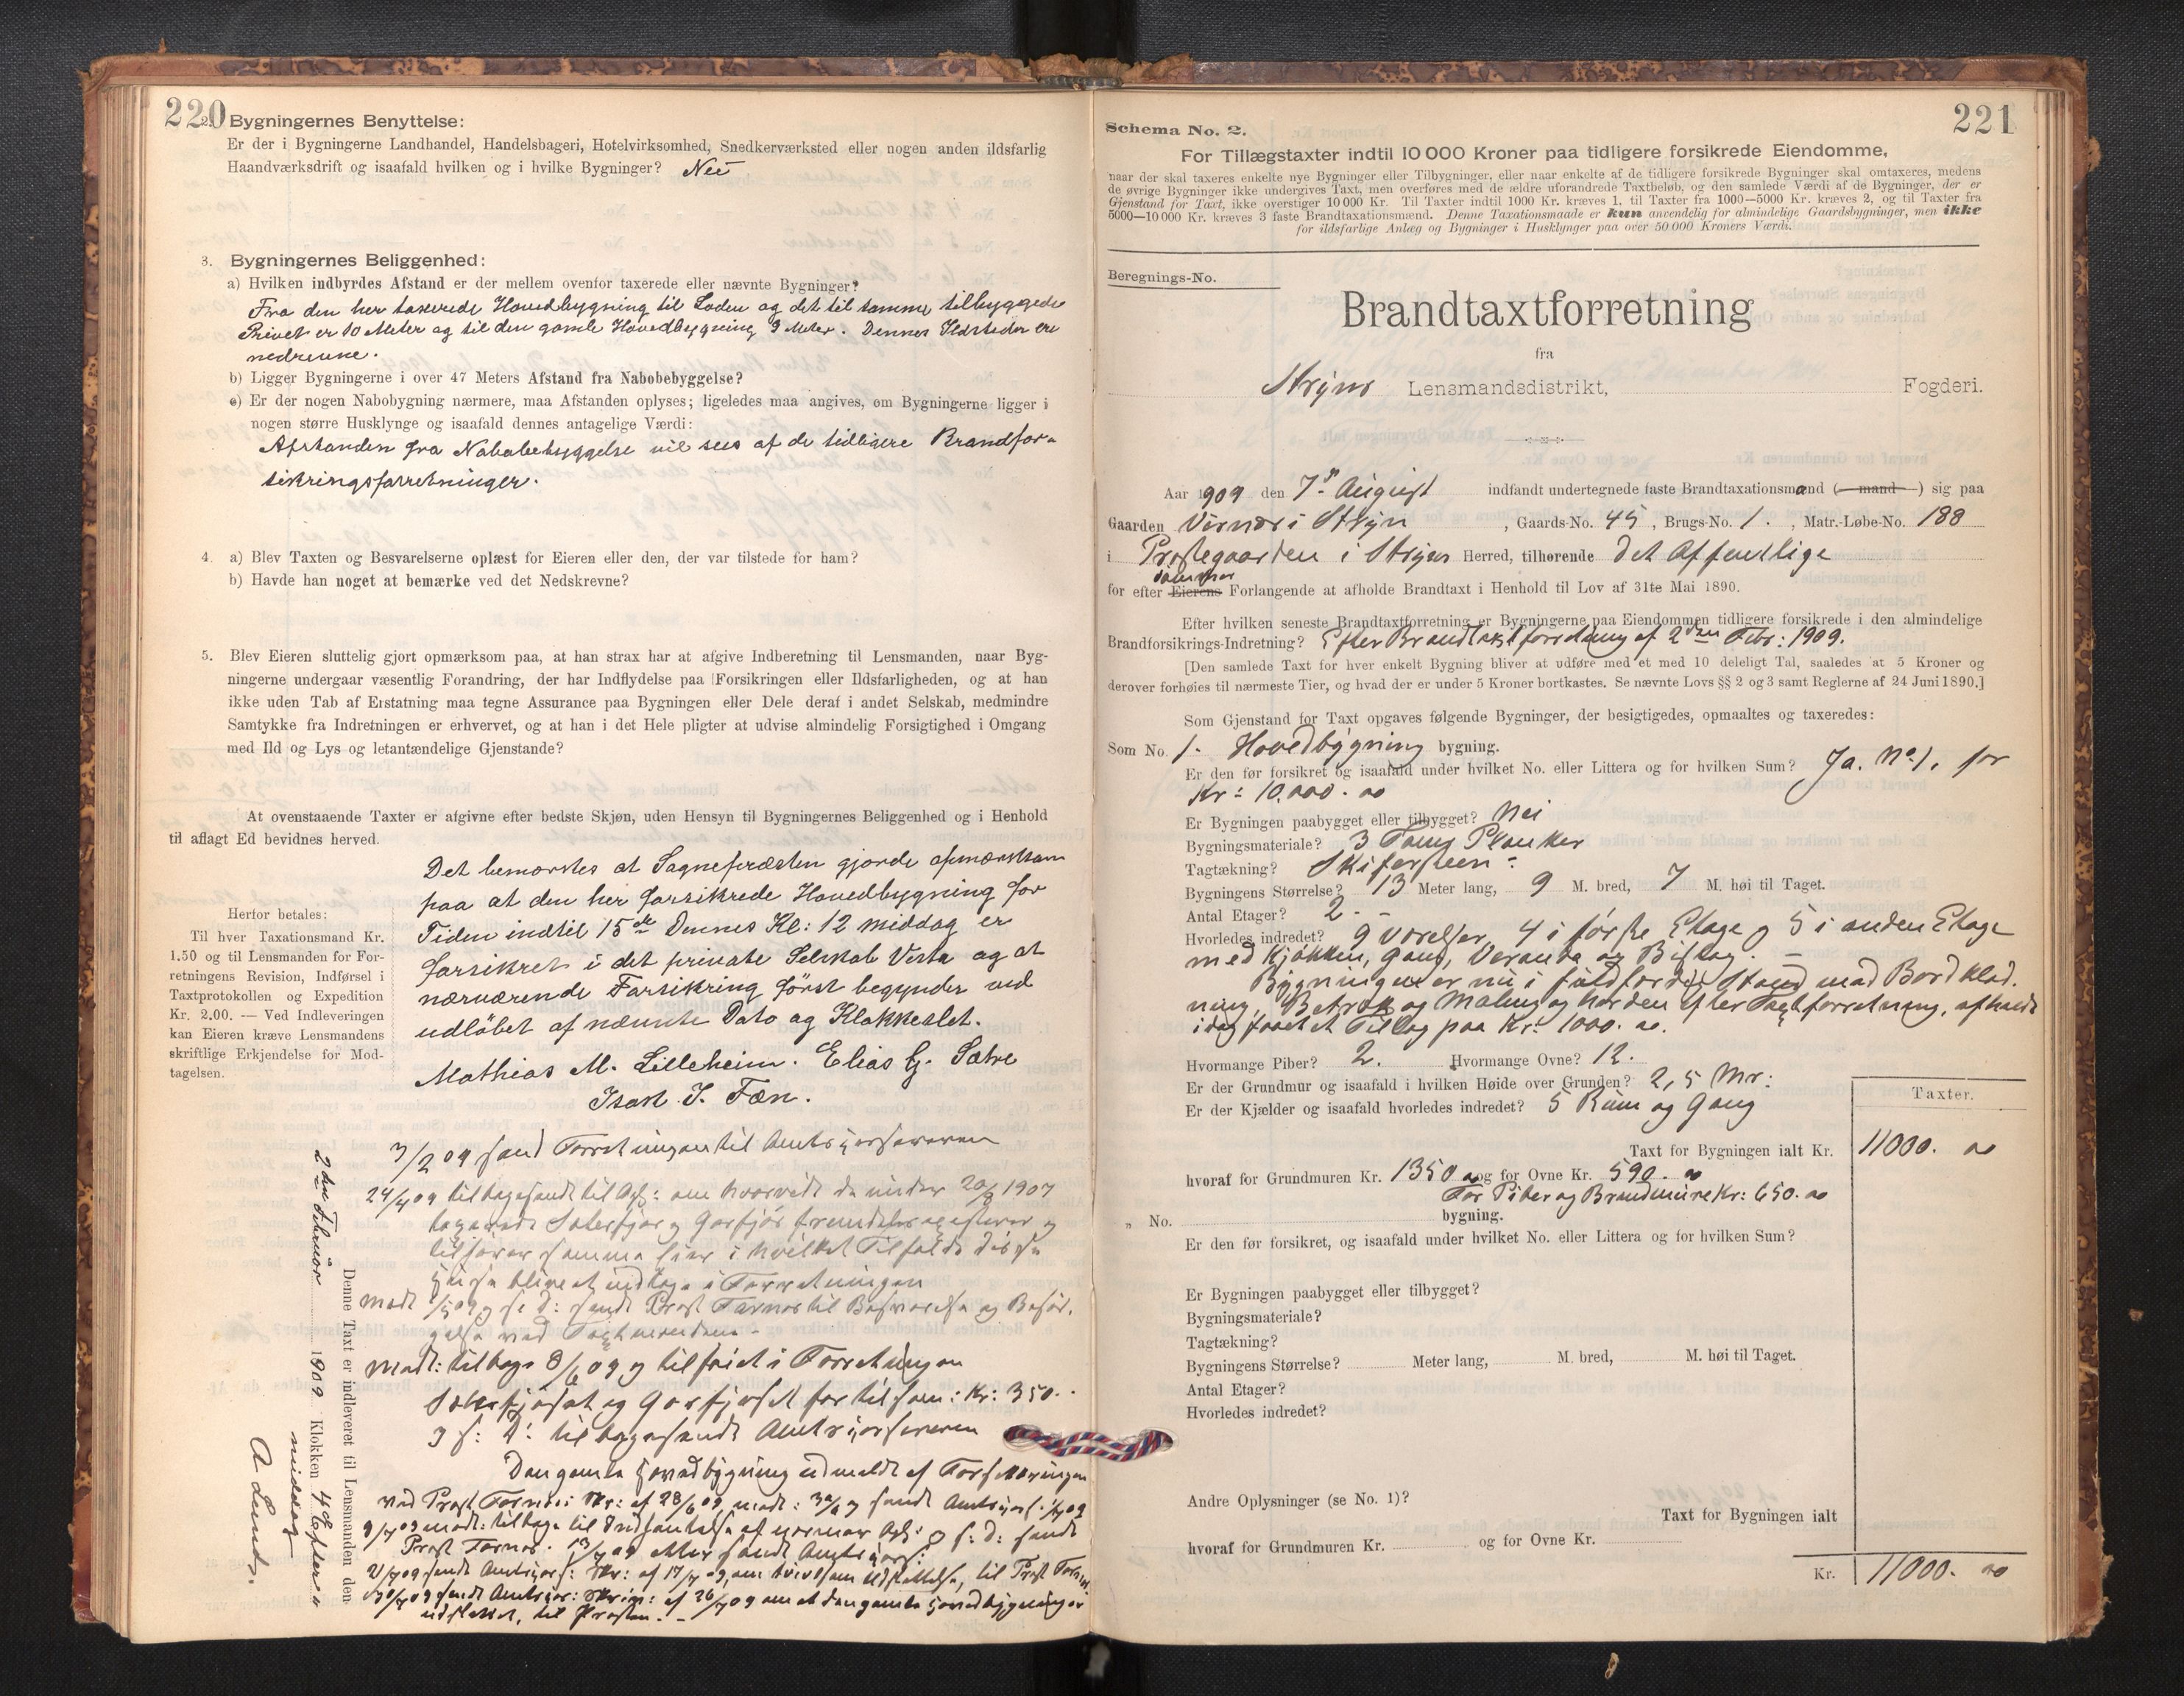 220
2. Bygningernes Benyttelse:
Er der i Bygningerne Landhandel, Handelsbageri, Hotelvirksomhed, Snedkerværksted eller nogen anden ildsfarlig
Haandværksdrift og isaafald hvilken og i hvilke Bygninger? Nei
3. Bygningernes Beliggenhed:
a) Hvilken indbyrdes Afstand er der mellem ovenfor taxerede eller nævnte Bygninger?
Fra den her taxerede Hovedbygning til Laden og det til samme tilbyggede
Privet er 10 Meter og til den gamle Hovedbygning 9 Meter. Dennes Ildsteder er
nedrevne.
b) Ligger Bygningerne i over 47 Meters Afstand fra Nabobebyggelse?
c) Er der nogen Nabobygning nærmere, maa Afstanden oplyses; ligeledes maa angives, om Bygningerne ligger i
nogen større Husklynge og isaafald dennes antagelige Værdi:
Afstanden fra Nabobebyggelse vil sees af de tidligere Brandfor-
sikringsforretninger.
4. a) Blev Taxten og Besvarelserne oplæst for Eieren eller den, der var tilstede for ham?
b) Havde han noget at bemærke ved det Nedskrevne?
5. Blev Eieren sluttelig gjort opmærksom paa, at han strax har at afgive Indberetning til Lensmanden, naar Byg-
ningerne undergaar væsentlig Forandring, der har Indflydelse paa Forsikringen eller Ildsfarligheden, og at han
ikke uden Tab af Erstatning maa tegne Assurance paa Bygningen eller Dele deraf i andet Selskab, medmindre
Samtykke fra Indretningen er erhvervet, og at han i det Hele pligter at udvise almindelig Forsigtighed i Omgang
med Ild og Lys og letantændelige Gjenstande?
At ovenstaaende Taxter er afgivne efter bedste Skjøn, uden Hensyn til Bygningernes Beliggenhed og i Henhold
til aflagt Ed bevidnes herved.
Det bemærkes at Sognepræsten gjorde opmærksom
paa at den her forsikrede Hovedbygning for
Tiden indtil 15de Dennes Kl: 12 middag er
forsikret i det private Selskab Vesta og at
nærværende Forsikring først begynder ved
udløbet af nævnte Dato og Klokkeslet.
Mathias M. Lilleheim. Elias G. Sætre
Isak J. Fæn.
Herfor betales:
Til hver Taxationsmand Kr.
1.50 og til Lensmanden for For-
retningens Revision, Indførsel i
Taxtprotokollen og Expedition
Kr. 2.00. — Ved Indleveringen
kan Eieren kræve Lensmandens
skriftlige Erkjendelse for Mod-
tagelsen.
3/2 09 send Forretningen til Amtets
24/4 09 tilbagesendt til
i hvilket Tilfælde disse
blive at indtage i Forretningen
til Besvarelse og
Modt: tilbage 8/6 09 og tilføiet i Forretningen
for tilsam: Kr: 350.
tilbagesendt
Den gamle Hovedbygning udmeldt af Forsikringen
ved Prost
udslettet, til Prosten.
Denne Taxt er indleveret til Lensmanden den
2den Februar 1909 Klokken 4 Efter-
middag
A Lund.
221
Schema No. 2.
For Tillægstaxter indtil 10 000 Kroner paa tidligere forsikrede Eiendomme,
naar der skal taxeres enkelte nye Bygninger eller Tilbygninger, eller naar enkelte af de tidligere forsikrede Bygninger skal omtaxeres, medens
de øvrige Bygninger ikke undergives Taxt, men overføres med de ældre uforandrede Taxtbeløb, og den samlede Værdi af de Bygninger, der er
Gjenstand for Taxt, ikke overstiger 10 000 Kr. Til Taxter indtil 1000 Kr. kræves 1, til Taxter fra 1000—5000 Kr. kræves 2, og til Taxter fra
5000—10 000 Kr. kræves 3 faste Brandtaxationsmænd. Denne Taxationsmaade er kun anvendelig for almindelige Gaardsbygninger, men ikke
for ildsfarlige Anlæg og Bygninger i Husklynger paa over 50 000 Kroners Værdi.
Beregnings-No.
Brandtaxtforretning
fra
Stryns Lensmandsdistrikt, Fogderi.
Aar 1909 den 7de August indfandt undertegnede faste Brandtaxationsmænd (mand) sig paa
Gaarden Visnes i Stryn, Gaards-No. 45, Brugs-No. 1., Matr.-Løbe-No. 188
i Prestegaarden i Stryns Herred, tilhørende det Offentlige
for efter Eierens Forlangende at afholde Brandtaxt i Henhold til Lov af 31te Mai 1890.
Efter hvilken seneste Brandtaxtforretning er Bygningerne paa Eiendommen tidligere forsikrede i den almindelige
Brandforsikrings-Indretning? Efter Brandtaxtforretning af 2den Febr: 1909.
[Den samlede Taxt for hver enkelt Bygning bliver at udføre med et med 10 deleligt Tal, saaledes at 5 Kroner og
derover forhøies til nærmeste Tier, og hvad der er under 5 Kroner bortkastes. Se nævnte Lovs §§ 2 og 3 samt Reglerne af 24 Juni 1890.]
Som Gjenstand for Taxt opgaves følgende Bygninger, der besigtigedes, opmaaltes og taxeredes:
Som No. 1. Hovedbygning bygning.
Er den før forsikret og isaafald under hvilket No. eller Littera og for hvilken Sum? Ja. No 1. for
Kr: 10.000. 00
Er Bygningen paabygget eller tilbygget? Nei
Bygningsmateriale? 3 Toms Planker
Tagtækning? Skifersteen
Bygningens Størrelse? 13 Meter lang, 9 M. bred, 7 M. høi til Taget.
Antal Etager? 2.
Hvorledes indredet? 9 værelser, 4 i første Etage og 5 i anden Etage
med Kjøkken, Gang, Veranda og Bislag.
Bygningen er nu i fuldfærdig Stand med Bordklæd-
ning, Betræk og Maling og har den efter Taxtforretning, afholdt
idag faaet et Tillæg paa Kr: 1000. 00.
Hvormange Piber? 2. Hvormange Ovne? 12.
Er der Grundmur og isaafald i hvilken Høide over Grunden? 2,5 Mr:
Er der Kjælder og isaafald hvorledes indredet? 5 Rum og Gang
Taxter.
Taxt for Bygningen ialt Kr. 11000. 00
hvoraf for Grundmuren Kr. 1350 og for Ovne Kr. 590. 00
For Piber og Brandmure Kr: 650. 00
„ No. bygning.
Er den før forsikret, og isaafald under hvilket No. eller Littera og for hvilken Sum?
Er Bygningen paabygget eller tilbygget?
Bygningsmateriale?
Tagtækning?
Bygningens Størrelse? Meter lang, M. bred, M. høi til Taget.
Antal Etager?
Hvorledes indredet?
Andre Oplysninger (se No. 1)?
Taxt for Bygningen ialt
hvoraf for Grundmuren Kr. og for Ovne Kr.
Kr. 11000. 00